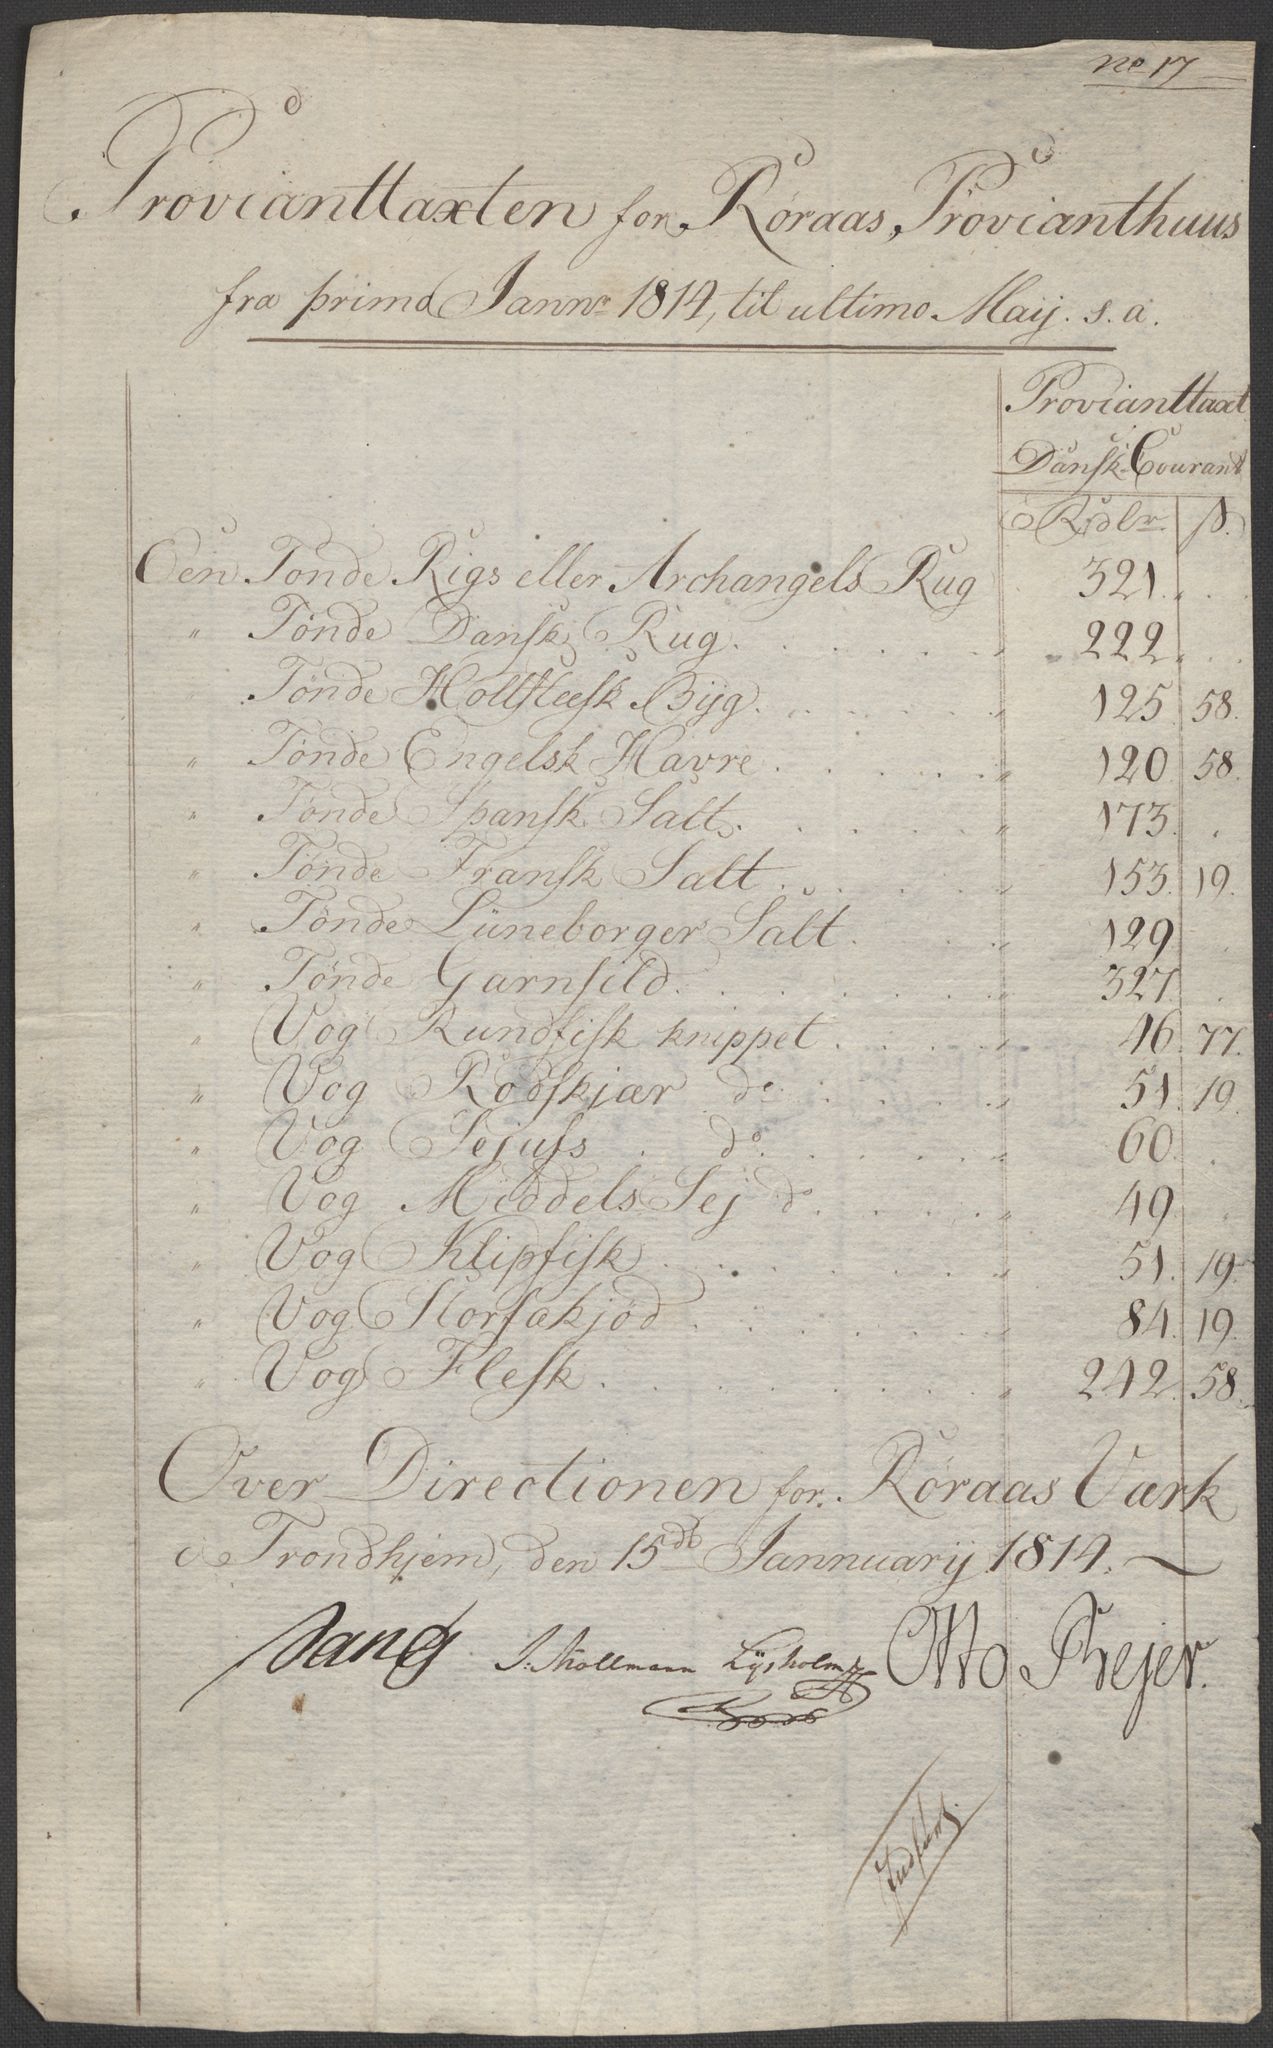 No 17
Provianttaxten for Røraas Provianthuus
fra primo Jannr 1814, til ultimo Maij. s. a.
Provianttaxt
Dansk Courant
Rdlr. ß.
Een Tønde Rigs eller Archangels Rug 321 . .
" Tønde Dansk Rug. . . . . . " 222 " .
Tønde Hollsteesk Byg. . . . . . " 125. 58.
" Tønde Engelsk Havre. . . . . . " 120. 58.
" Tønde Spansk Salt. . . . . . " 173. .
" Tønde Fransk Salt . . . . . . " 153. 19.
" Tønde Lüneborger Salt. . . . " 129 .
" Tønde Garnsild. . . . . . . . " 327 .
" Vog Rundfisk knippet. . . . . " 46. 77.
" Vog Rødskjær do . . . . . " 51. 19.
" Vog Sejufs . do. . . . . . " 60. .
" Vog Middels Sej do. . . . . . " 49 .
" Vog Klipfisk . . . . . . . . " 51. 19.
" Vog Storfækjød . . . . . . . " 84. 19.
" Vog Flesk. . . . . . . . . " 242. 58.
Over Directionen for Røraas Værk
i Trondhjem, den 15de Jannuarij 1814.
Vang J. Mollmann Lysholm Otto Beyer.